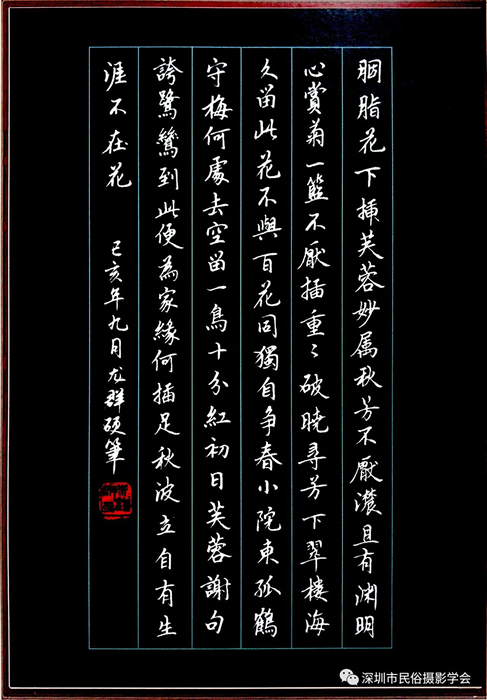 胭脂花下插芙蓉妙属秋芳不厭濃且有渊明
心賞菊一籃不厭插重〻破曉尋芳下翠樓海
久留此花不與百花同獨自争春小院東孤鶴
守梅何處去空留一鳥十分紅初日芙蓉謝句
誇鷺鷥到此便為家緣何插足秋波立自有生
涯不在花 己亥年九月龙群硬筆
深圳市民俗摄影学会